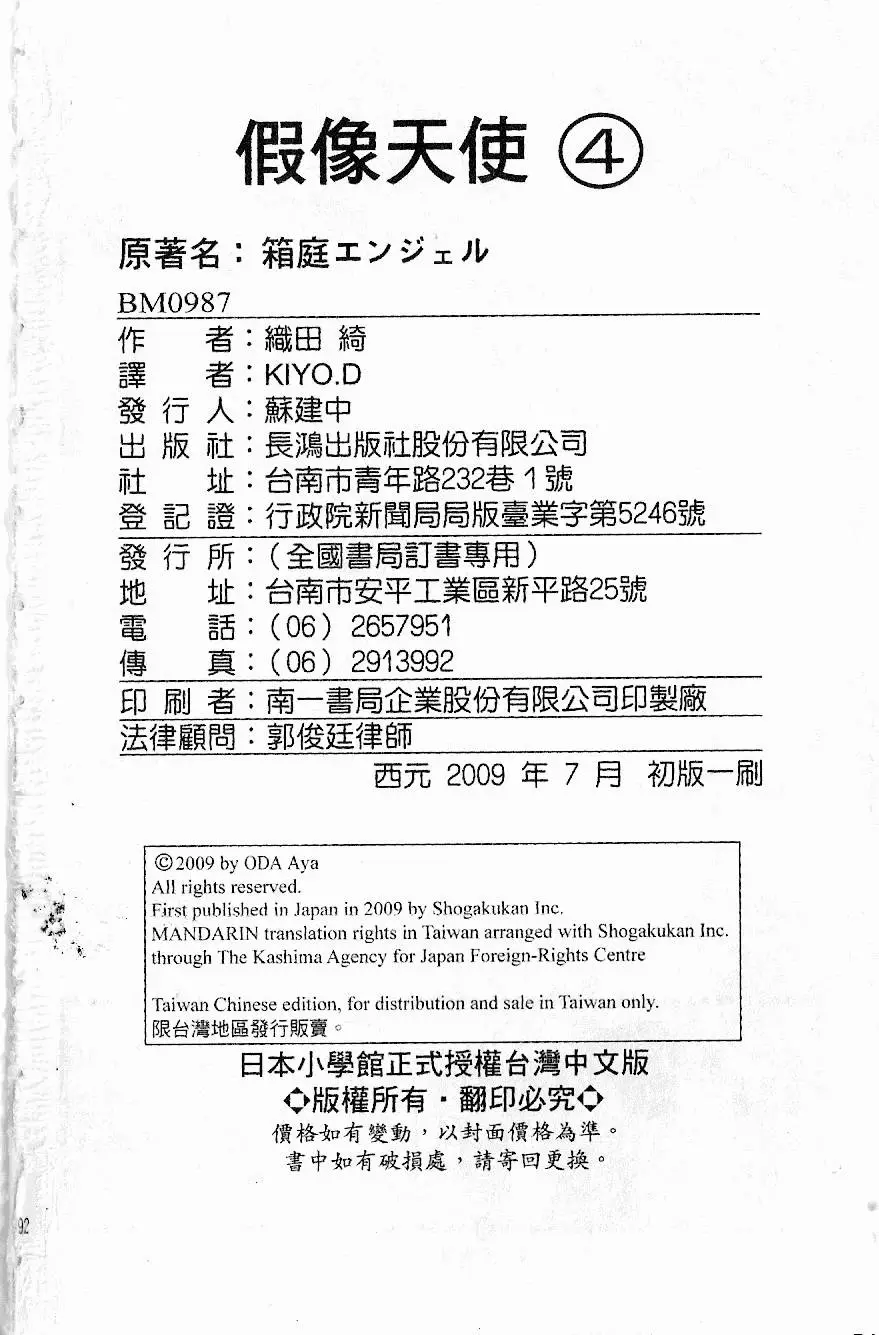 假像天使 ④
原著名：箱庭エンジェル
BM0987
作者：織田 綺
譯者：KIYO.D
發行人：蘇建中
出版社：長鴻出版社股份有限公司
社址：台南市青年路232巷1號
登記證：行政院新聞局局版臺業字第5246號
發行所：(全國書局訂書專用)
地址：台南市安平工業區新平路25號
電話：(06) 2657951
傳真：(06) 2913992
印刷者：南一書局企業股份有限公司印製廠
法律顧問：郭俊廷律師
西元 2009 年 7 月 初版一刷
©2009 by ODA Aya
All rights reserved.
First published in Japan in 2009 by Shogakukan Inc.
MANDARIN translation rights in Taiwan arranged with Shogakukan Inc.
through The Kashima Agency for Japan Foreign-Rights Centre
Taiwan Chinese edition, for distribution and sale in Taiwan only.
限台灣地區發行販賣。
日本小學館正式授權台灣中文版
◇版權所有·翻印必究◇
價格如有變動，以封面價格為準。
書中如有破損處，請寄回更換。
92